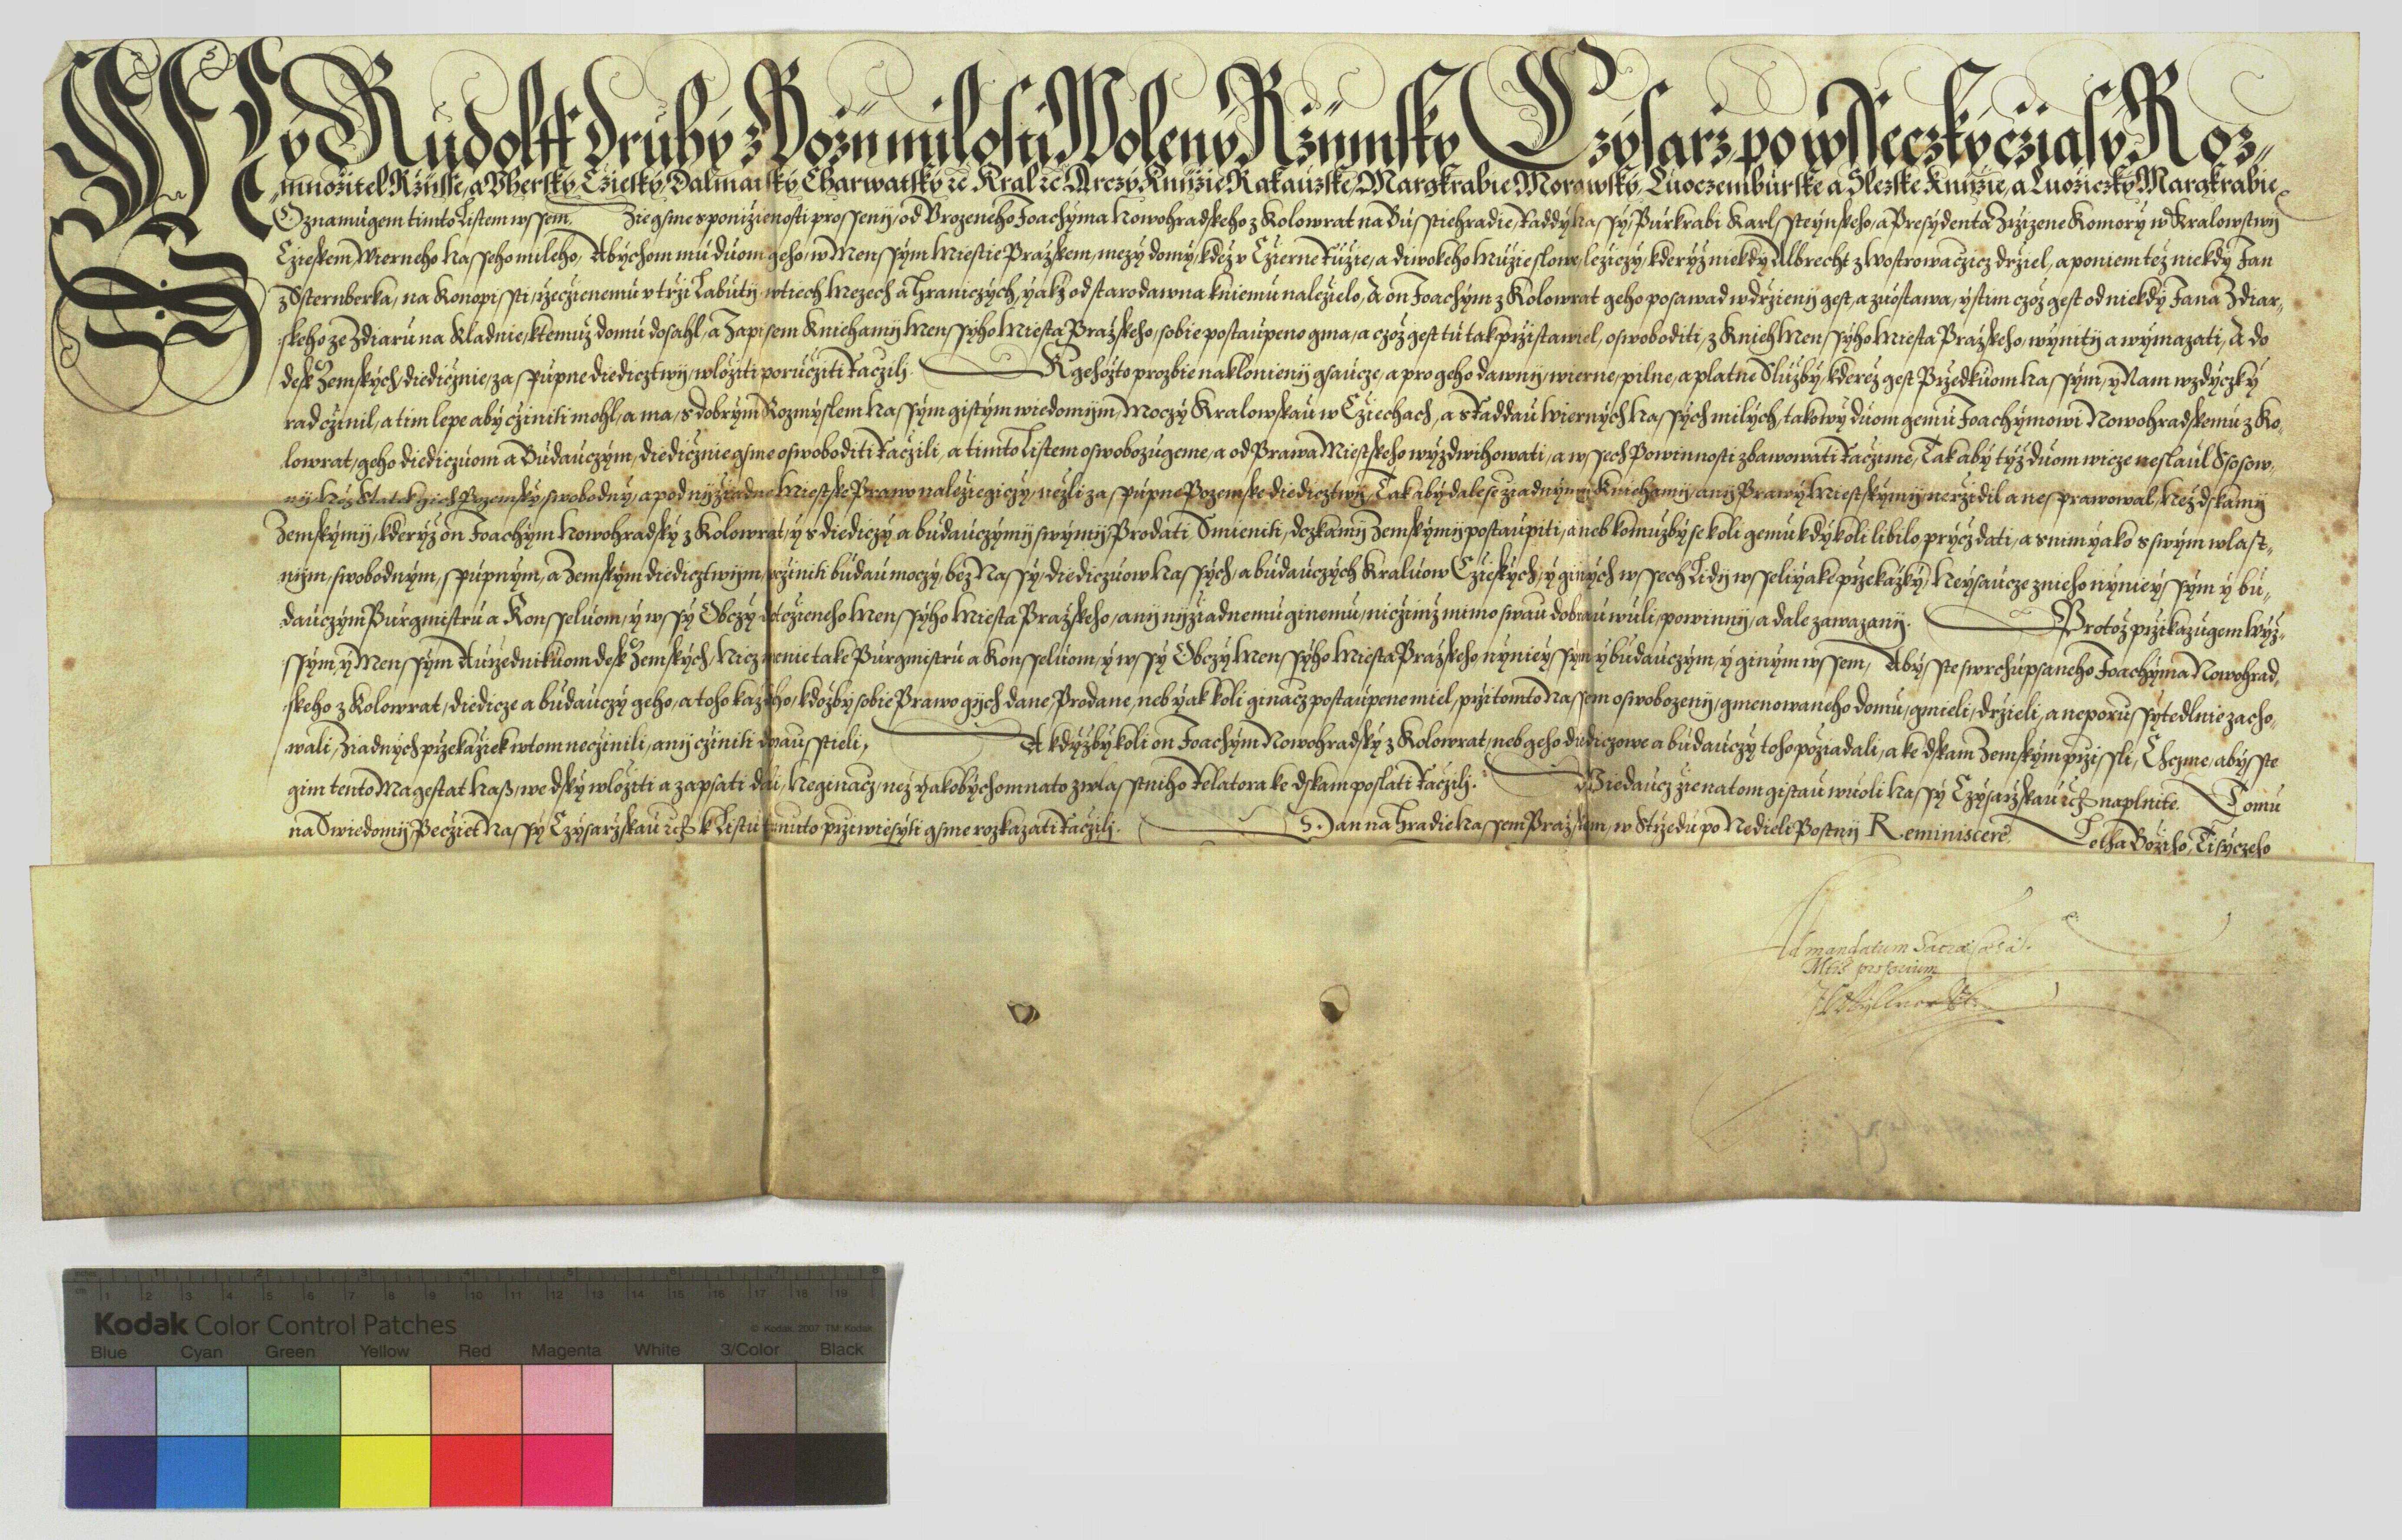 My Rudolff Druhý z Božij milosti Wolený Ržijmský Czýsarž, po wsseczký cžiasý Roz-
množitel Ržijsse, a Vherský, Cžieský, Dalmatský Charwatský rc̄ Kral rc̄ Arczý Knijžie Rakauzské, Margkrabie Morawský, Luoczemburské a Slezské Knijžie, a Lužiczký Margkrabie
Oznamugem timto Listem wssem, Ziegsme s ponižienosti prosseny, od Vrozeného Joachýma Nowohradského z Kolowrat na Busstiehradie, Raddý nassý, Purkrabi Karlssteýnského, a Presýdenta Zržizené Komorý w Kralowstwij
Cžieském, Wierného nasseho milého, Abýchom mu duom geho, w Menssým Miestie Pražském, mezý domý, kdež v Cžierné Ružie, a diwokého Muže slowe, ležiczý, kderýž niekdý Albrecht z Wostrowaczicz držiel, a po niem též niekdý Jan
z Ssternberka, na Konopissti,ržeczienému v trži Labutij, w tiech Mezech a Hraniczých, ýakž od starodawna k niemu naležielo, A on Joachým z Kolowrat geho posawad w držienij gest, a zuostawa, ý s tim czož gest od niekdý Jana Zdiar-
ského ze Zdiaru na Kladnie, k temuž domu dosahl, a Zapisem Kniehamij Menssýho Miesta Pražského, sobie postaupeno gma, a czož gest tu tak pržistawiel, oswoboditi, z Knieh Menssýho Miesta Pražského, wýnitij a wýmazati, A do
desk Zemských, diedicžnie, za spupné diedicztwij, wložiti porucžiti Raczilj. K gehožto prozbie naklonienij gsaucze, a pro geho dawnij, wierné, pilné, a platné Službý, kderéž gest Pržedkuom Nassým, ý Nam wzdýczký
rad cžinil, a tim lépe abý cžiniti mohl, a ma, s dobrým Rozmýslem Nassým gistým wiedomijm, Moczý Kralowskau w Cžiechach, a s Raddau Wierných Nassých milých, takowý duom gemu Joachýmowi Nowohradskému z Ko-
lowrat, geho diediczuom a Budauczým, diedicžnie gsme oswoboditi Raczili, a timto Listem oswobozugeme, a od Prawa Miestského wýzdwihowati, a wssech Powinnosti zbawowati Raczime, Tak abý týž duom wicze neslaul Ssosow-
nij, Než Statek gich Pozemský swobodný, a pod nižiadné Miestské Prawo naležiegiczý, nežli za spupné Pozemské diedicztwij, Tak abý dale se žiadnými Kniehamij, anij Prawý Miestskýmij neržidil a nesprawowal, Než dskamij
Zemskýmij, kderýž on Joachým Nowohradský z Kolowrat, ý s diediczý a budauczýmij swýmij, Prodati, Smieniti, dczkamij Zemskýmij postaupiti, aneb komuž bý se koli gemu kdýkoli libilo prýcž dati, a s nim ýako s swým wlast-
nijm, swobodným, spupným, a Zemským diedicztwijm, ucžiniti budau moczý, bez Nassý, diediczuow Nassých, a budauczých Kraluow Cžieských, ý giných wssech Lidij wsselijaké pržekážký, Neýsaucze z nieho nýnieýssým ý bu-
dauczým Purgmistru a Konsseluom, ý wssý Obczý dotczieného Menssýho Miesta Pražského, anij nižiadnému ginému, nicžimž mimo swau dobrau wuli, powinnij, a dale zawazanij. Protož pržikazugem Wýž-
ssým, ý Menssým Auržednikuom desk Zemských, Nicz menie také Purgmistru a Konsseluom, ý wssý Obczý Menssýho Miesta Pražského, nýnieýssým ý budauczým, ý giným wssem, Abýsste swrchupsaného Joachýma Nowohrad-
ského z Kolowrat, diedicze a budauczý geho, a toho každého, kdožbý sobie Prawo gých dané, Prodané, neb ýakkoli ginacž postaupené miel, prži tomto Nassem oswobozenij, gmenowaného domu, gmieli, držieli, a neporussýtedlnie zacho-
wali, Žiadných pržekažiek w tom necžinili, anij cžiniti dopausstieli, A kdýžbýkoli on Joachým Nowohradský z Kolowrat, neb geho diediczowé a budauczý toho požiadali, a ke dskam Zemským pržissli, Chczme, abýsste
gim tento Magestat Naß, we dský wložiti a zapsati dali, Neginacž, než ýakobýchom na to zwlasstniho Relatora ke dskam poslati Raczilj. Wiedaucz žie na tom gistau wuoli Nassý Czýsaržskau rc̄ naplnite. Tomu
na Swiedomij Peczieť Nassý Czýsaržskau rc̄ k Listu tomuto prziwiesýti gsme rozkazati Raczilj. Dan na Hradie Nassem Pražském, w Stržedu po Nedieli Postnij Reminiscere. Letha Božiho, Tisýczého
Ad mandatum Sacrae Caes.
Mtis proprium
Kodak Color Control Patches
© Kodak, 2007 TM: Kodak
Blue Cyan Green Yellow Red Magenta White 3/Color Black